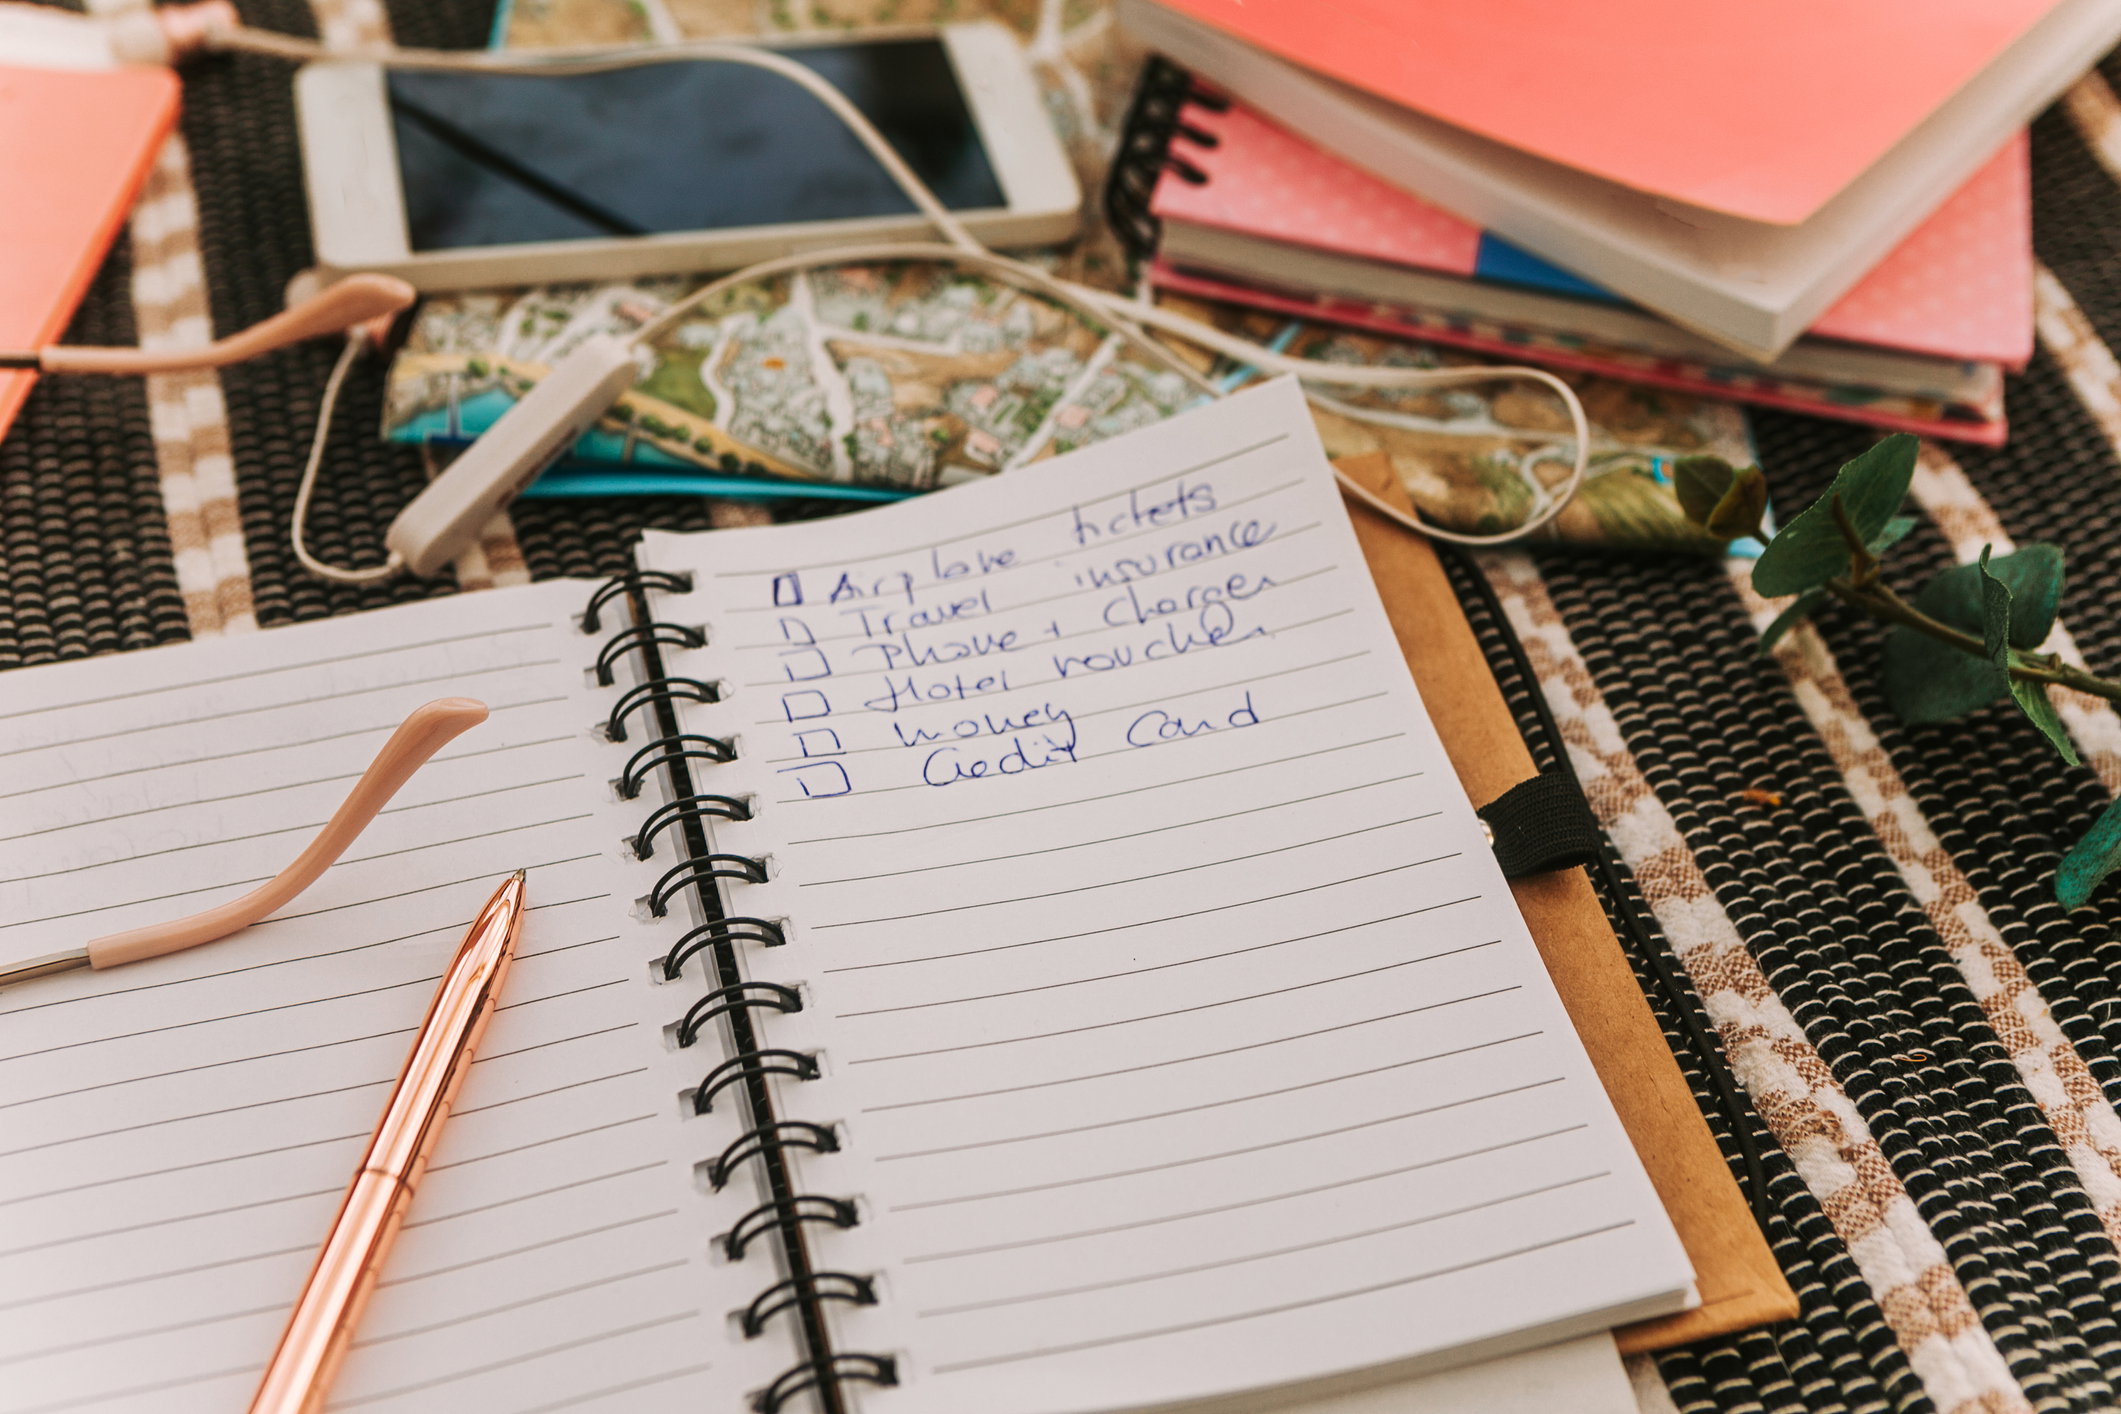 Airplane tickets
Travel insurance
Phone + Charger
Hotel voucher
Money
Credit Card